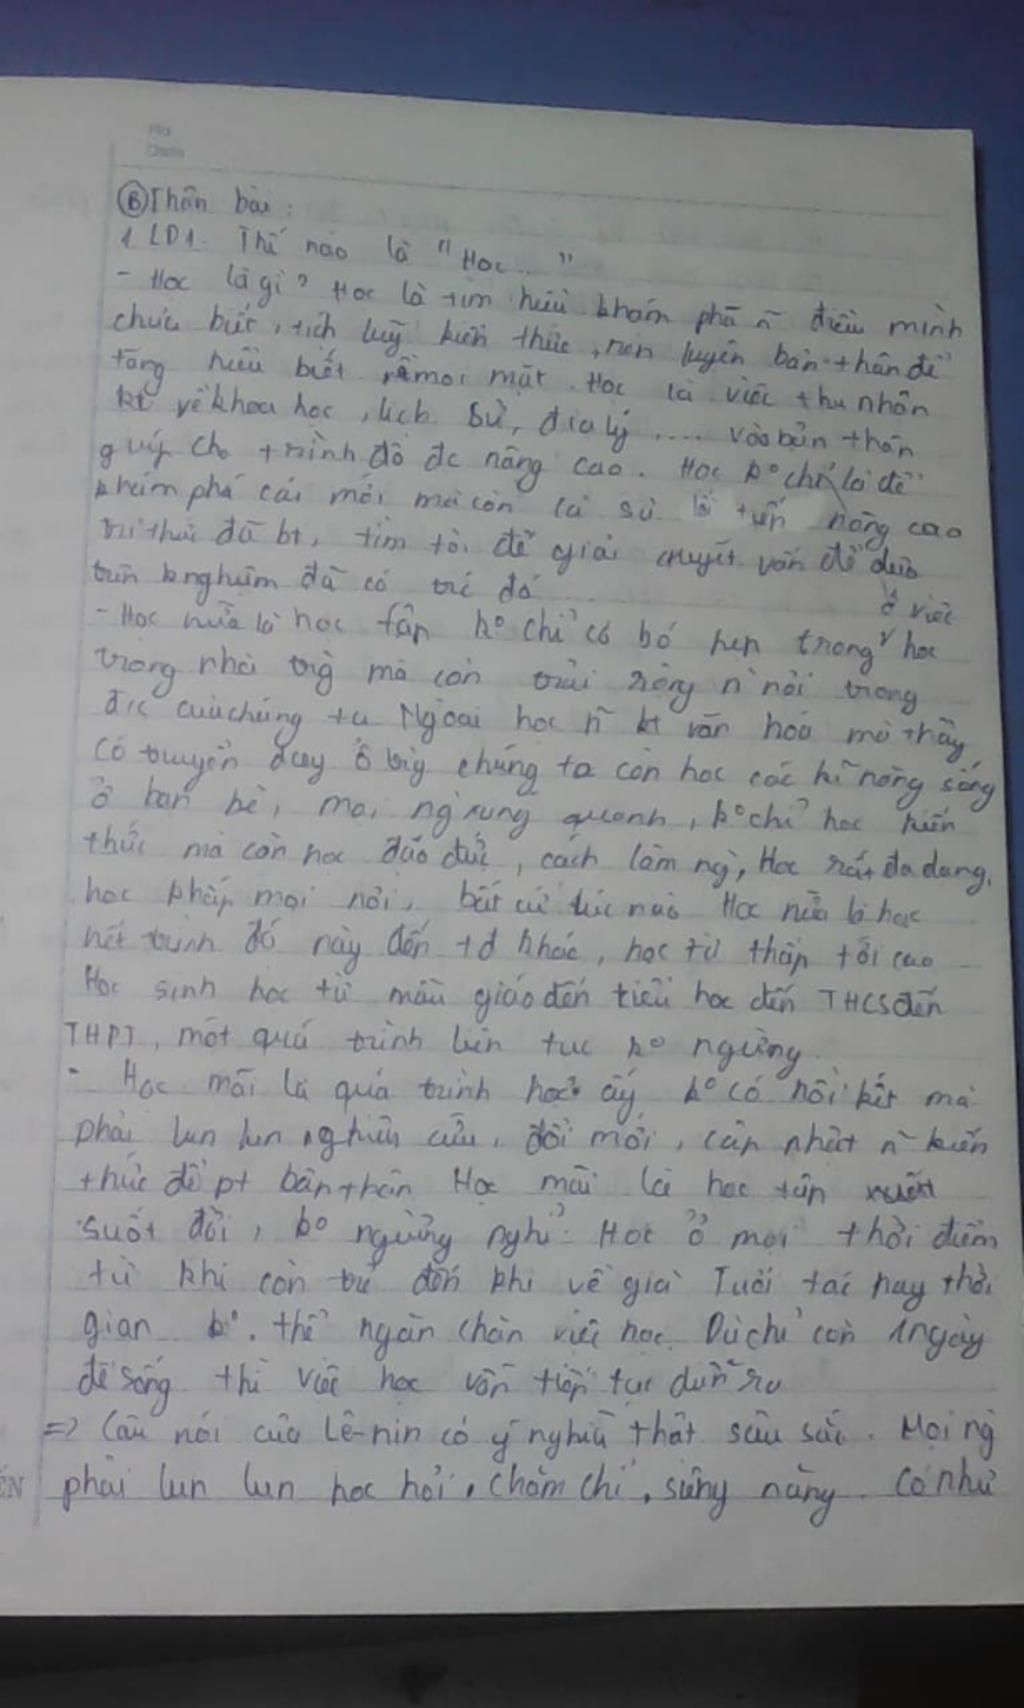 Ⓑ Thân bài:
1. LD1. Thế nào là "Học..."
- Học là gì? Học là tìm hiểu khám phá n~ điều mình
chưa biết, tích luỹ kiến thức, rèn luyện bản thân để
tăng hiểu biết về mọi mặt. Học là việc thu nhận
kt về khoa học, lịch sử, địa lý .... vào bản thân
giúp cho trình độ đc nâng cao. Học k° chỉ là để
khám phá cái mới mà còn là sự nâng cao
tri thức đã bt, tìm tòi để giải quyết vấn đề dựa
trên knghiệm đã có trc đó
ở việc
- Học nữa là học tập k° chỉ có bó hẹp trong v học
trong nhà trg mà còn trải rộng n` nơi trong
đ/c của chúng ta Ngoài học n~ kt văn hoá mà thầy
cô truyền dạy ở trg chúng ta còn học các kĩ năng sống
ở bạn bè, mọi ng xung quanh, k° chỉ học kiến
thức mà còn học đạo đức, cách làm ng`, Học rất đa dạng,
học khắp mọi nơi, bất cứ lúc nào Học nữa là học
hết trình độ này đến tđ khác, học từ thấp tới cao
Học sinh học từ mẫu giáo đến tiểu học đến THCS đến
THPT, một quá trình liên tục k° ngừng.
- Học mãi là quá trình học ấy k° có hồi kết mà
phải lun lun nghiên cứu, đổi mới, cập nhật n~ kiến
thức để pt bản thân Học mãi là học tập
suốt đời, k° ngừng nghỉ. Học ở mọi thời điểm
từ khi còn trẻ đến khi về già Tuổi tác hay thời
gian k°. thể ngăn chặn việc học. Dù chỉ còn 1 ngày
để sống thì việc học vẫn tiếp tục diễn ra
=> Câu nói của Lê-nin có ý nghĩa thật sâu sắc. Mọi ng`
phải lun lun học hỏi, chăm chỉ, siêng năng. Có như